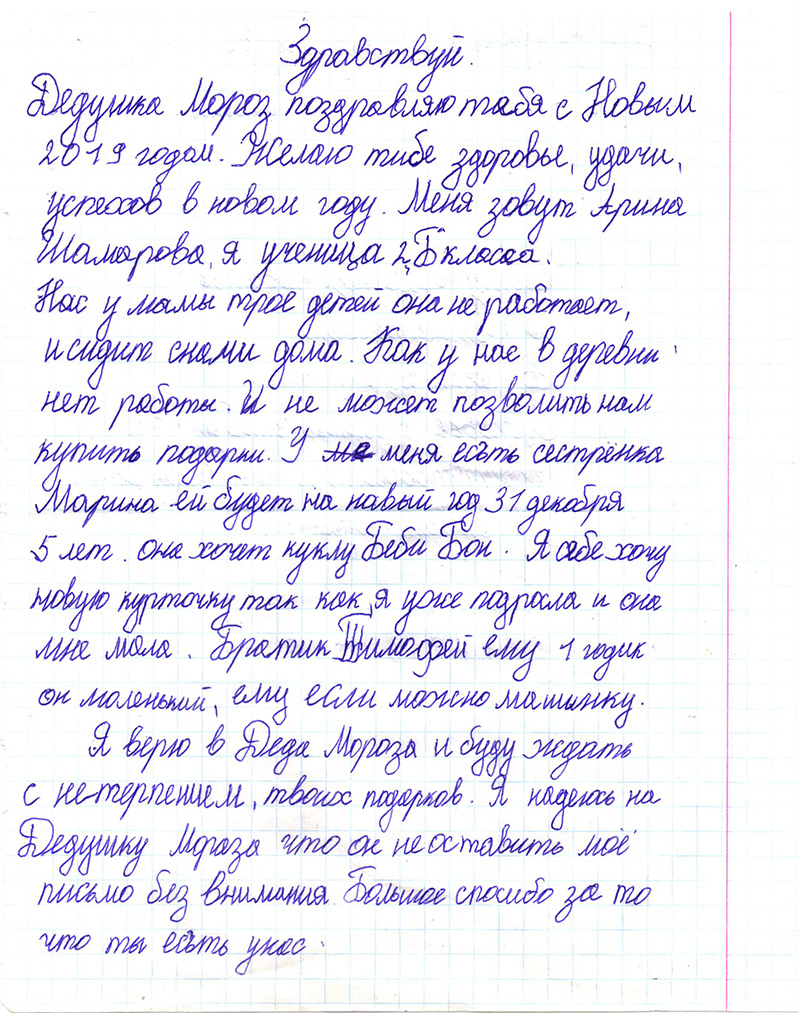 Здравствуй.
Дедушка Мороз поздравляю табя с Новым
2019 годом. Желаю тибе здоровье, удачи,
успехов в новом году. Меня зовут Арина
Шамарова, я ученица 2 "Б" класса.
Нас у мамы трое детей она не работает,
и сидит снами дома. Как у нас в деревни
нет работы. И не может позволить нам
купить подарки. У ме меня есть сестрёнка
Марина ей будет на навый год 31 декабря
5 лет. она хочет куклу Беби Бон. Я себе хочу
новую курточку так как, я уже подрасла и она
мне мала. Братик Тимофей ему 1 годик
он маленький, ему если можно машинку.
Я верю в Деда Мороза и буду ждать
с не-терпением, твоих подарков. Я надеюсь на
Дедушку Мороза что он не оставить моё
письмо без внимания. Большое спасибо за то
что ты есть унас.